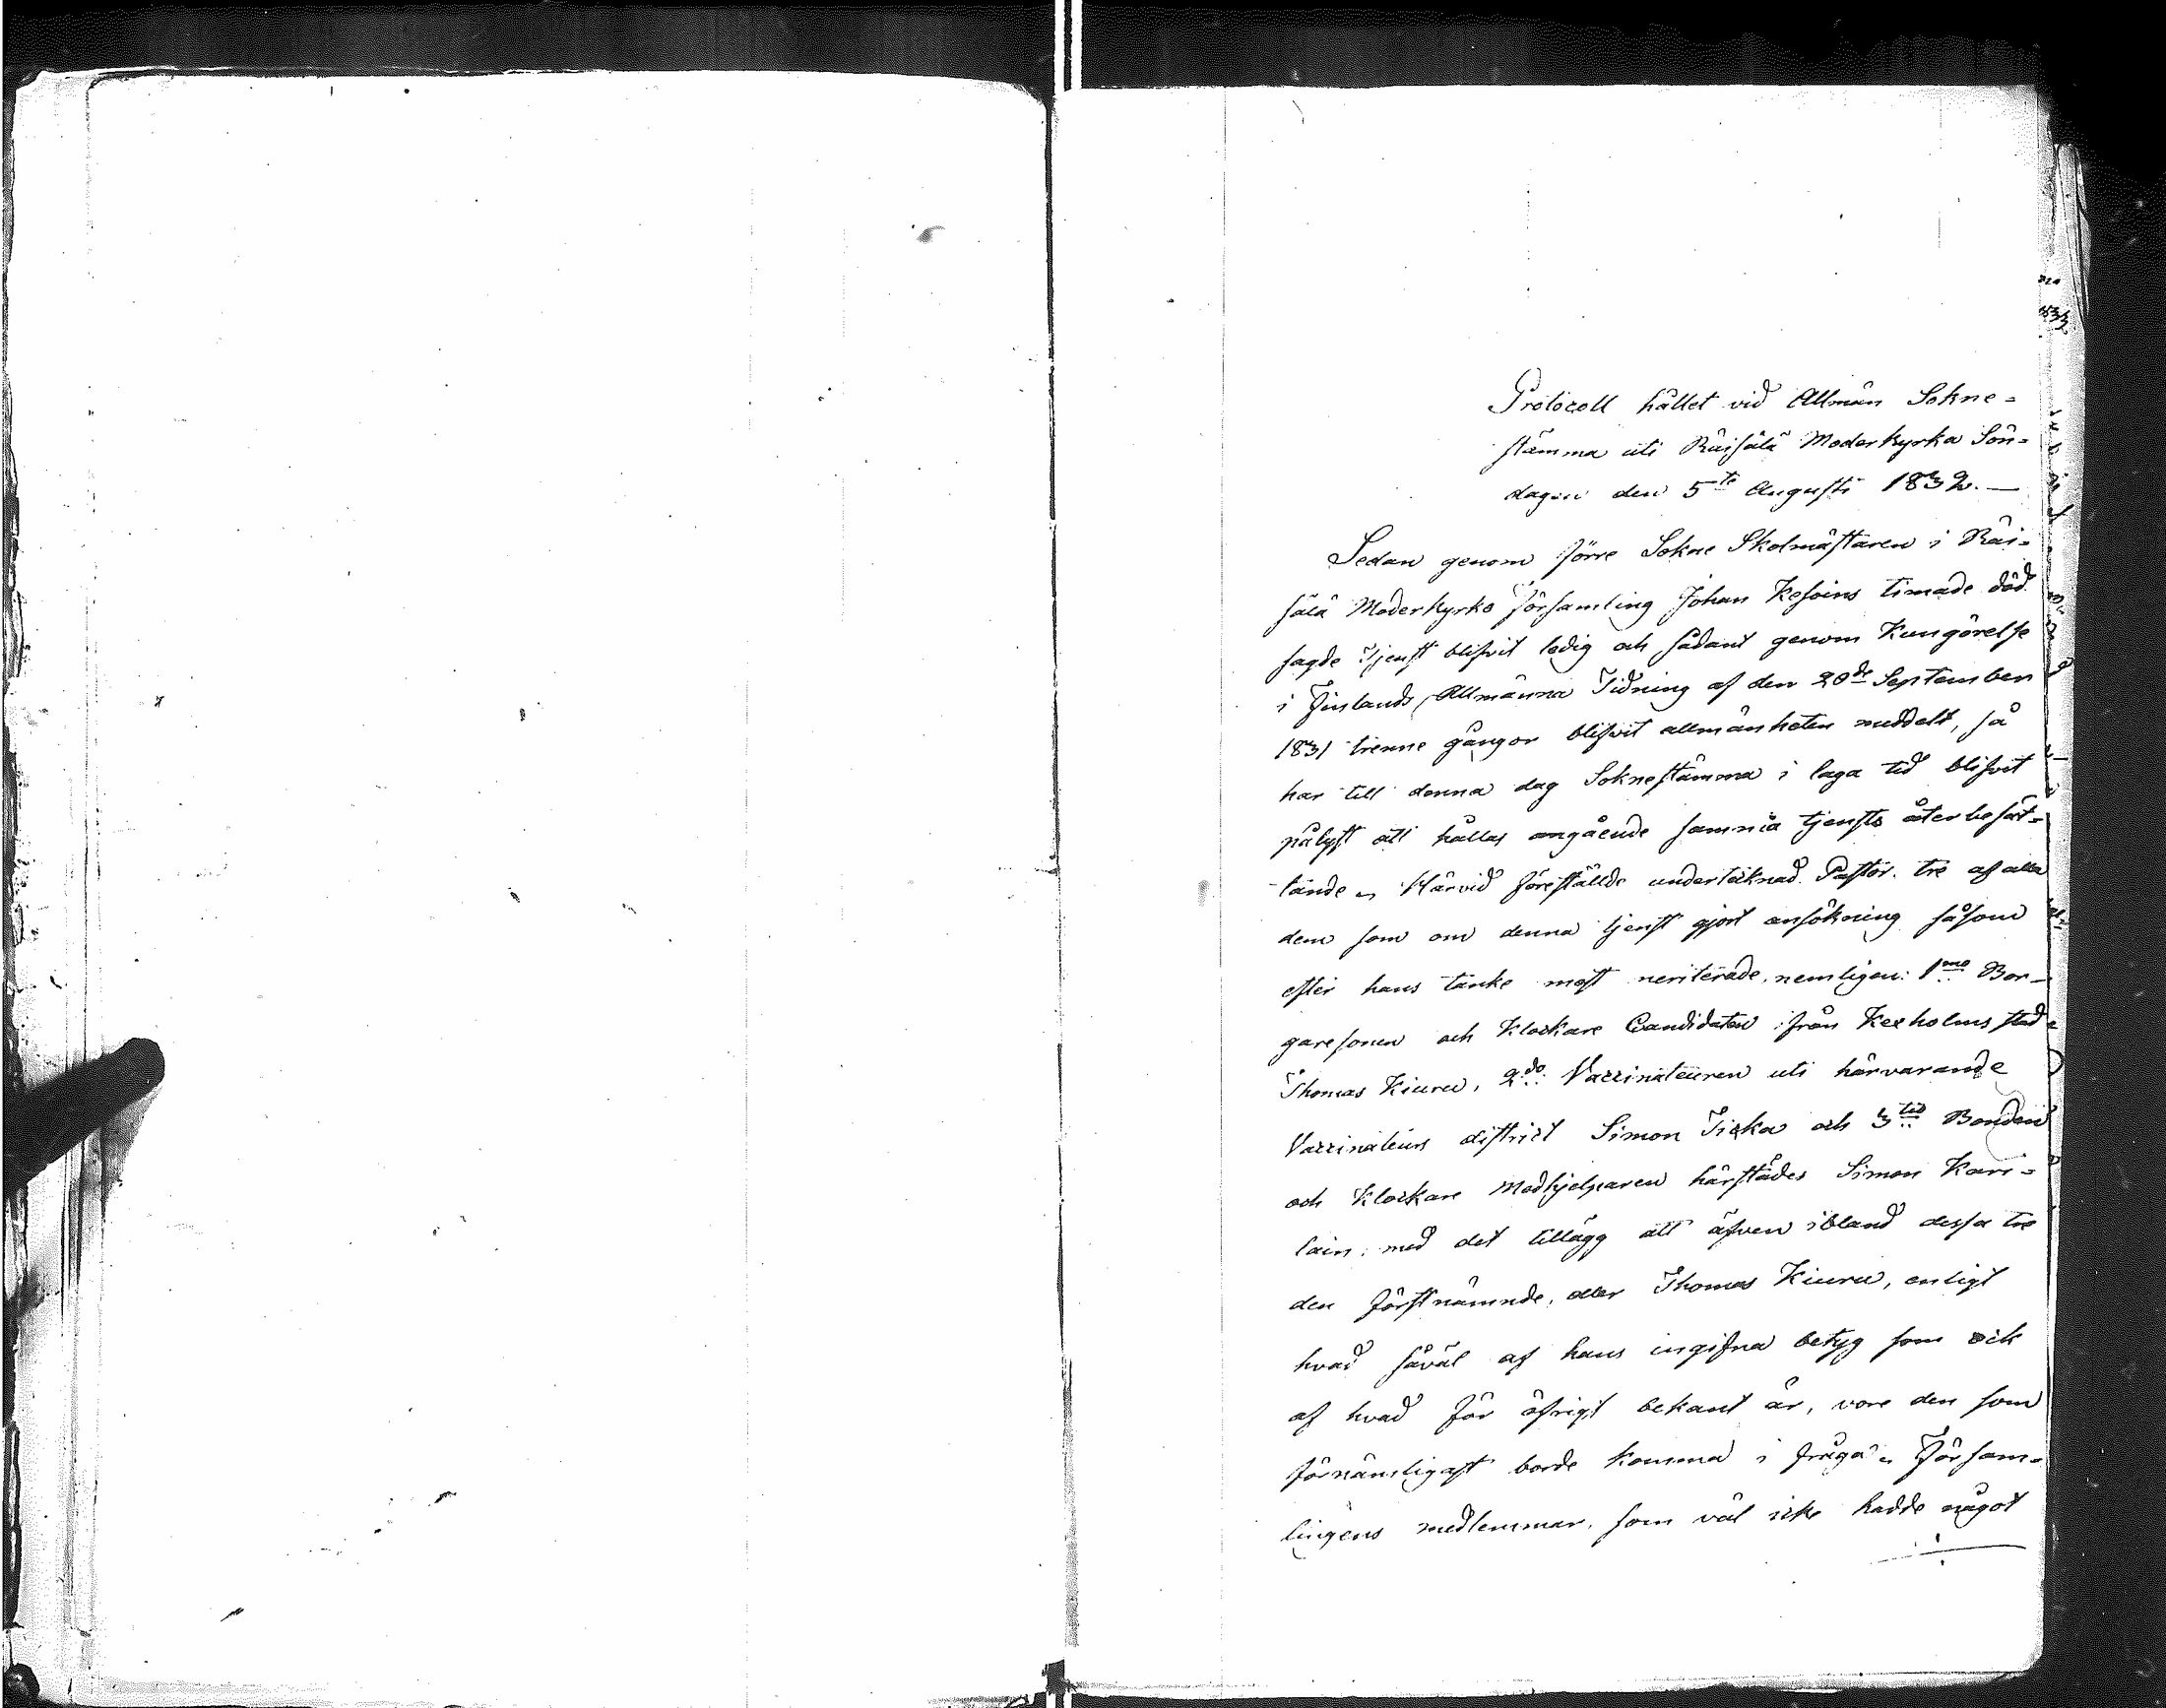 Protocoll hållet vid Allmän Sokne-
stämma uti Räisälä Moderkyrka Sön-
dagen den 5te Augusti 1832. —
Sedan genom förre Sokne Skolmästaren i Räi-
sälä Moderkyrko församling Johan Kesoins timade död
sagde Tjenst blifvit ledig och sådant genom Kungörelse
i Finlands Allmänna Tidning af den 20de September
1831 trenne gångor blifvit allmänheten meddelt, så
har till denna dag Soknestämma i laga tid blifvit
pålyst att hållas angående samma tjensts återbesät-
tande. Härvid föreställde undertecknad Pastor tre af alla
dem som om denna tjenst gjort ansökning såsom
efter hans tanke mest meriterade, nemligen: 1mo Bor-
garesonen och Klockare Candidaten ifrån Kexholms stad
Thomas Kiuru, 2do Vaccinateuren uti härvarande
Vaccinateurs district Simon och 3tio Bonden
och Klockare Medhjelparen härstädes Simon Kari-
lain; med det tillägg att äfven ibland dessa tre
den förstnämnde, eller Thomas Kiuru, enligt
hvad såväl af hans ingifna betyg som ock
af hvad för öfrigt bekant är, vore den som
förnämligast borde komma i fråga. Försam-
lingens medlemmar, som väl icke hadde något